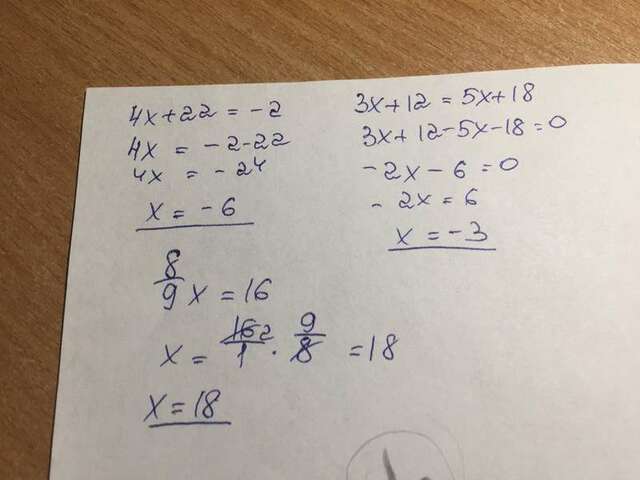 4x+22 = -2
4x = -2-22
4x = -24
x = -6
3x+12 = 5x+18
3x+12-5x-18=0
-2x-6=0
-2x=6
x=-3
8/9 x = 16
x = 16 2/1 · 9/8 = 18
x=18